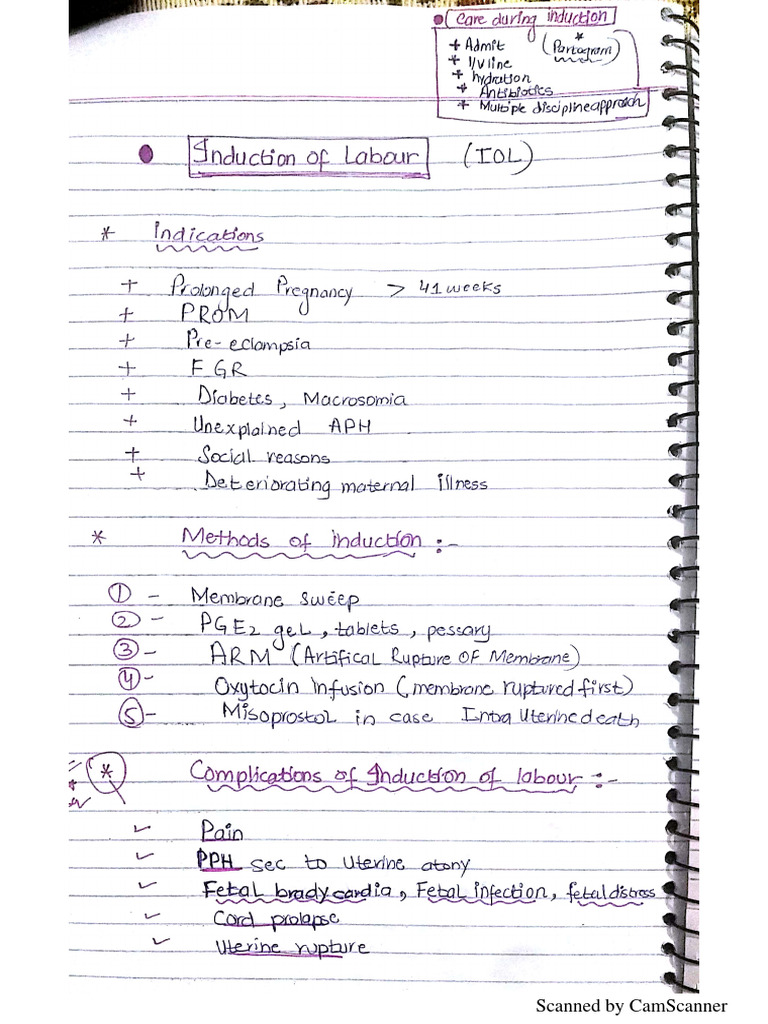 Care during induction
+ Admit
(Partogram)
+ I/V line
+ hydration
+ Antibiotics
+ Multiple discipline approach
Induction of Labour (IOL)
* Indications
+ Prolonged Pregnancy > 41 weeks
+ PROM
+ Pre-eclampsia
+ FGR
+ Diabetes, Macrosomia
+ Unexplained APH
+ Social reasons
+ Deteriorating maternal illness
* Methods of induction :-
1 - Membrane sweep
2 - PGE2 gel, tablets, pessary
3 - ARM (Artifical Rupture OF Membrane)
4 - Oxytocin infusion (membrane ruptured first)
5 - Misoprostol in case Intra Uterine death
* Complications of Induction of labour :-
✓ Pain
✓ PPH sec to Uterine atony
✓ Fetal bradycardia, Fetal infection, fetal distress
✓ Cord prolapse
✓ Uterine rupture
Scanned by CamScanner